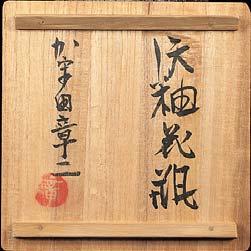 灰釉花瓶
加守田章二